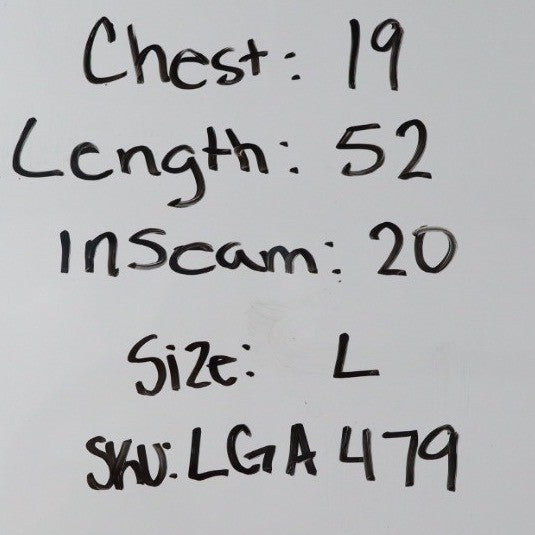 Chest: 19
Length: 52
Inseam: 20
Size: L
SKU: LGA479